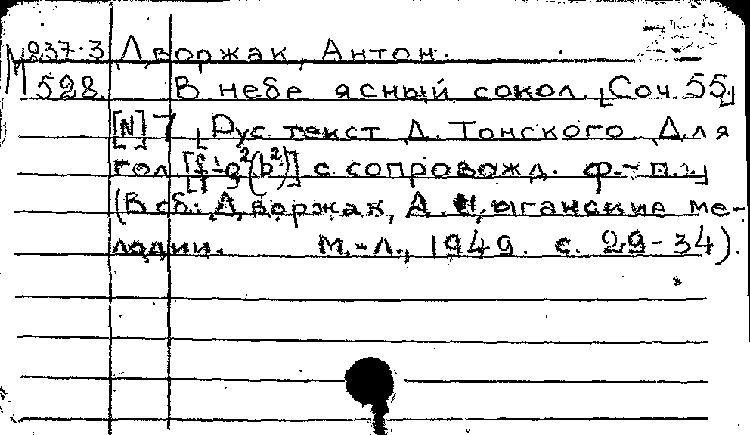 М 237-3 Дворжак, Антон.
528 В небе ясный сокол. [Соч. 55,
[N] 7 [Рус. текст Д. Тонского. Для
гол. [f¹-g²(b²)] с сопровожд. ф.-п.]
(В сб.: Дворжак, А. Цыганские ме-
лодии. М.-Л., 1949. с. 29-34).